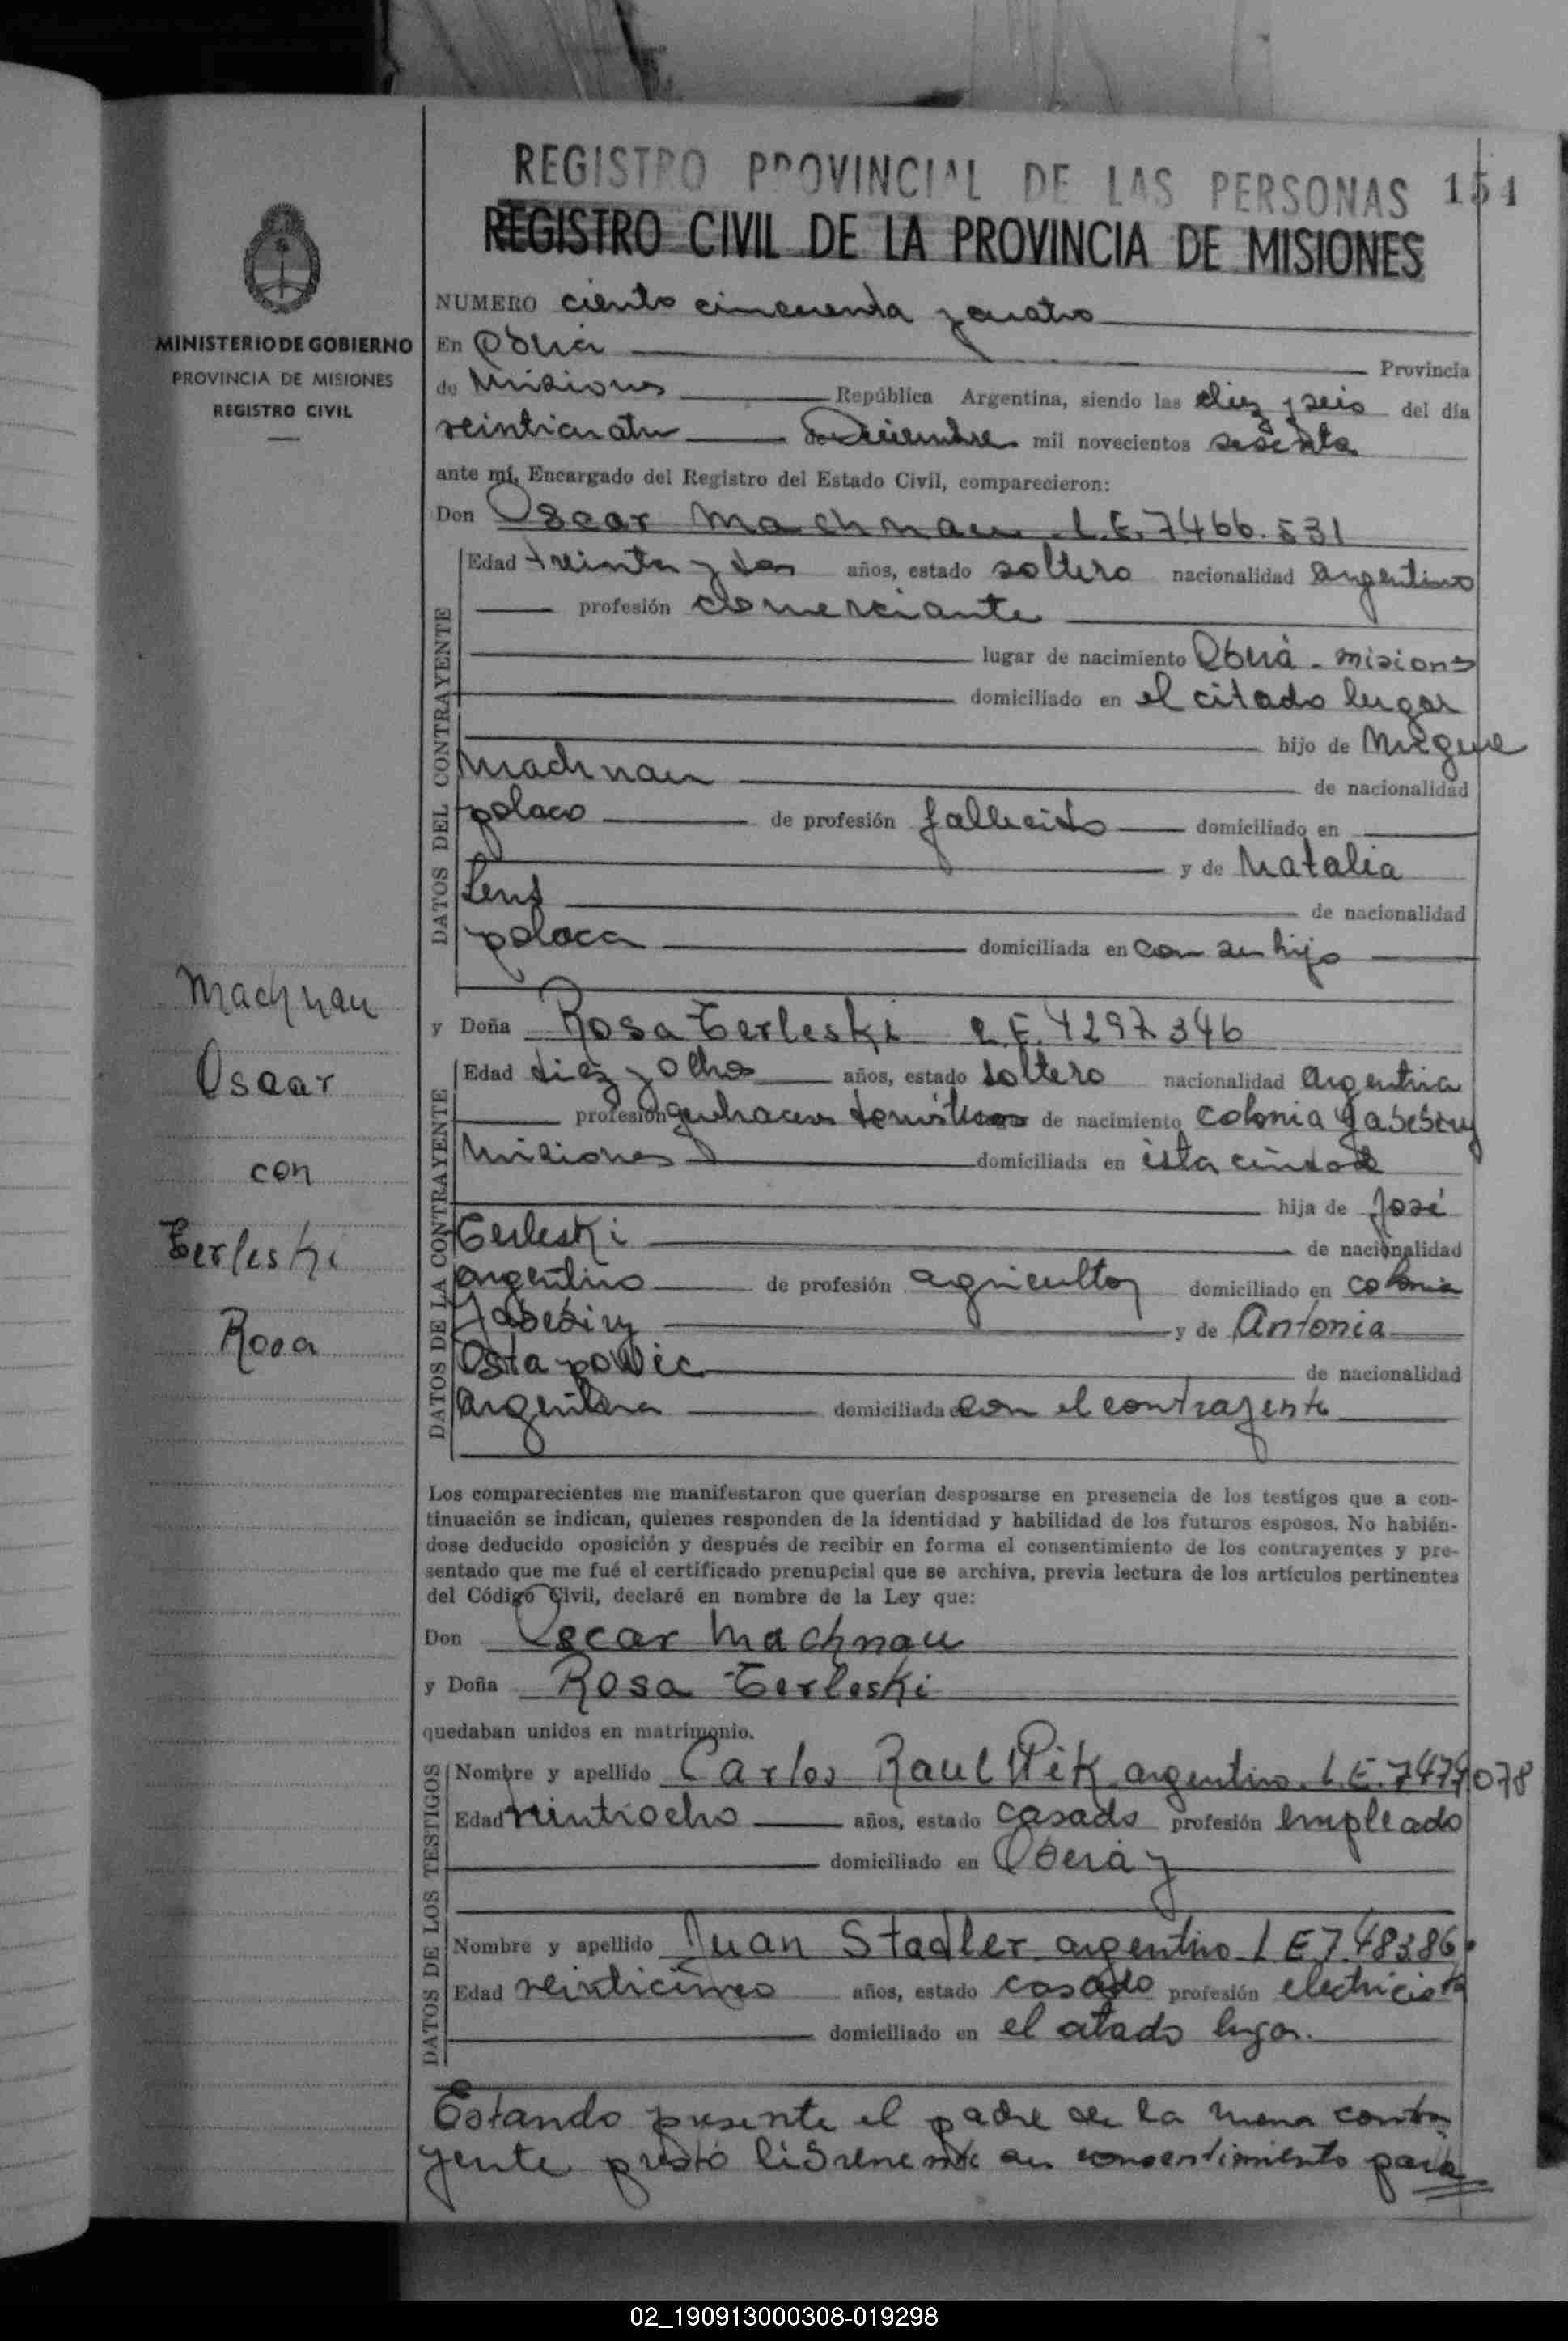 REGISTRO PROVINCIAL DE LAS PERSONAS 151
REGISTRO CIVIL DE LA PROVINCIA DE MISIONES
MINISTERIO DE GOBIERNO
PROVINCIA DE MISIONES
REGISTRO CIVIL
NUMERO ciento cincuenta y cuatro
En Oberá Provincia
de Misiones República Argentina, siendo las diez y seis del día
veinticuatro de Diciembre mil novecientos sesenta
ante mí, Encargado del Registro del Estado Civil, comparecieron:
Don Oscar Machnau L.E. 7466.531
DATOS DEL CONTRAYENTE
Edad treinta y dos años, estado soltero nacionalidad argentino
profesión comerciante
lugar de nacimiento Oberá - Misiones
domiciliado en el citado lugar
hijo de Miguel
Machnau de nacionalidad
polaco de profesión fallecido domiciliado en
y de Natalia
de nacionalidad
polaca domiciliada en con su hijo
Machnau
Oscar
con
Terleski
Rosa
y Doña Rosa Terleski L.E. 4297346
DATOS DE LA CONTRAYENTE
Edad diez y ocho años, estado soltero nacionalidad argentina
profesión quehaceres domésticos de nacimiento colonia Yabebiry
Misiones domiciliada en esta ciudad
hija de José
Terleski de nacionalidad
argentino de profesión agricultor domiciliado en colonia
Yabebiry y de Antonia
Ostapowic de nacionalidad
argentina domiciliada con el contrayente
Los comparecientes me manifestaron que querían desposarse en presencia de los testigos que a con-
tinuación se indican, quienes responden de la identidad y habilidad de los futuros esposos. No habién-
dose deducido oposición y después de recibir en forma el consentimiento de los contrayentes y pre-
sentado que me fué el certificado prenupcial que se archiva, previa lectura de los artículos pertinentes
del Código Civil, declaré en nombre de la Ley que:
Don Oscar Machnau
y Doña Rosa Terleski
quedaban unidos en matrimonio.
DATOS DE LOS TESTIGOS
Nombre y apellido Carlos Raul Pik argentino. L.E. 7479078
Edad veintiocho años, estado casado profesión empleado
domiciliado en Oberá y
Nombre y apellido Juan Stadler argentino L E 7.48386
Edad veinticinco años, estado casado profesión electricista
domiciliado en el citado lugar.
Estando presente el padre de la menor contra
yente prestó libremente su consentimiento para
02_190913000308-019298